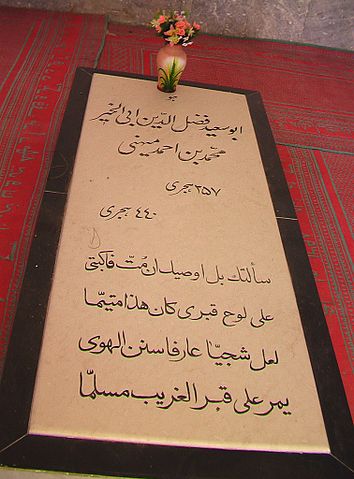 هو
ابو سعید فضل الدین ابی الخیر
محمد بن احمد میهنی
۳۵۷ هجری
۴۴۰ هجری
سألتك بل اوصیك ان مُتّ فاكتبی
علی لوح قبری كان هذا متیّما
لعل شجیّا عارفا سنن الهوی
یمر علی قبر الغریب مسلّما